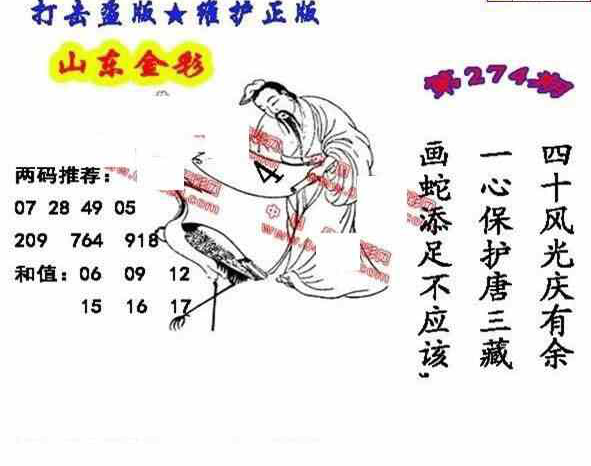 打击盗版★维护正版
山东金彩
第274期
两码推荐：
07 28 49 05
209 764 918
和值：06 09 12
15 16 17
4
四十风光庆有余
一心保护唐三藏
画蛇添足不应该